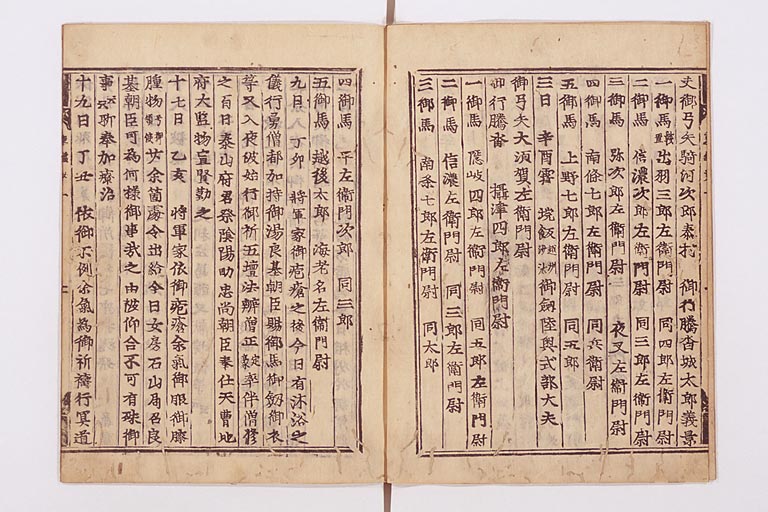 丈御弓矢駿河次郎泰村　御行騰沓城太郎義景
一御馬置鞍出羽三郎左衛門尉　同四郎左衛門尉
二御馬　信濃次郎左衛門尉　同三郎左衛門尉
三御馬　弥次郎左衛門尉　夜叉左衛門尉
四御馬　南條七郎左衛門尉　同兵衛尉
五御馬　上野七郎左衛門尉　同五郎
三日　辛酉霽　垸飯越州沙汰御剱陸奥式部大夫
御弓矢大須賀左衛門尉
御行騰沓　攝津四郎左衛門尉
一御馬　隠岐四郎左衛門尉　同五郎左衛門尉
二御馬　信濃左衛門尉　同三郎左衛門尉
三御馬　南条七郎左衛門尉　同太郎
四御馬　平左衛門次郎　同三郎
五御馬　越後太郎　海老名左衛門尉
九日　丁卯　将軍家御疱瘡之後今日有沐浴之
儀行勇僧都加持御湯良基朝臣賜御馬御剱御衣
等又入夜被始行御祈五壇法辨僧正定豪率伴僧修
之百日泰山府君祭陰陽助忠尚朝臣奉仕天曹地
府大監物宣賢勤之
十七日　乙亥　将軍家依御疱瘡余氣御眼御膝
腫物廿余箇處令出給今日女房石山局召良
基朝臣可為何様御事哉之由被仰合不可有殊御
事之所奉加療治
十九日　丁丑　依御不例余氣為御祈禱行冥道